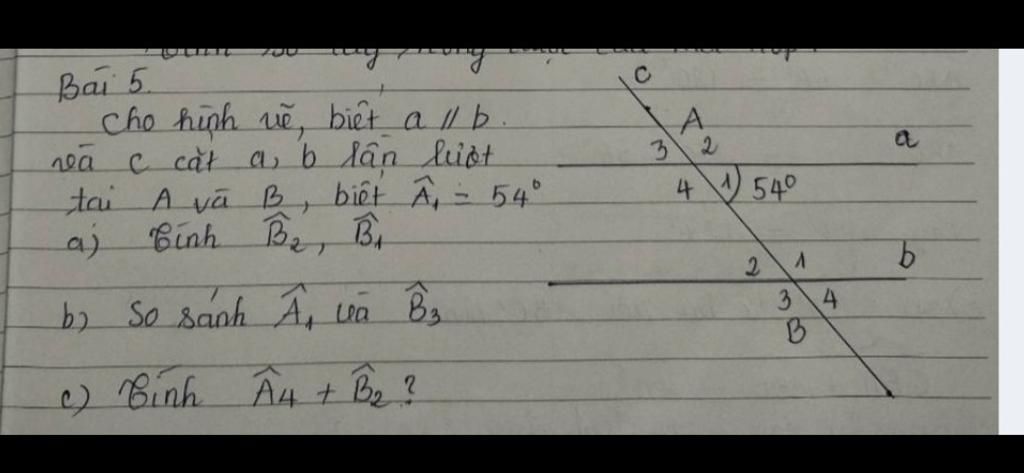 Bài 5.
Cho hình vẽ, biết a // b.
và c cắt a, b lần lượt
tại A và B, biết Â₁ = 54°
a) Tính B̂₂, B̂₁
b) So sánh Â₁ và B̂₃
c) Tính Â₄ + B̂₂ ?
c
A
3 2
a
4 1 54°
2 1
b
3 4
B